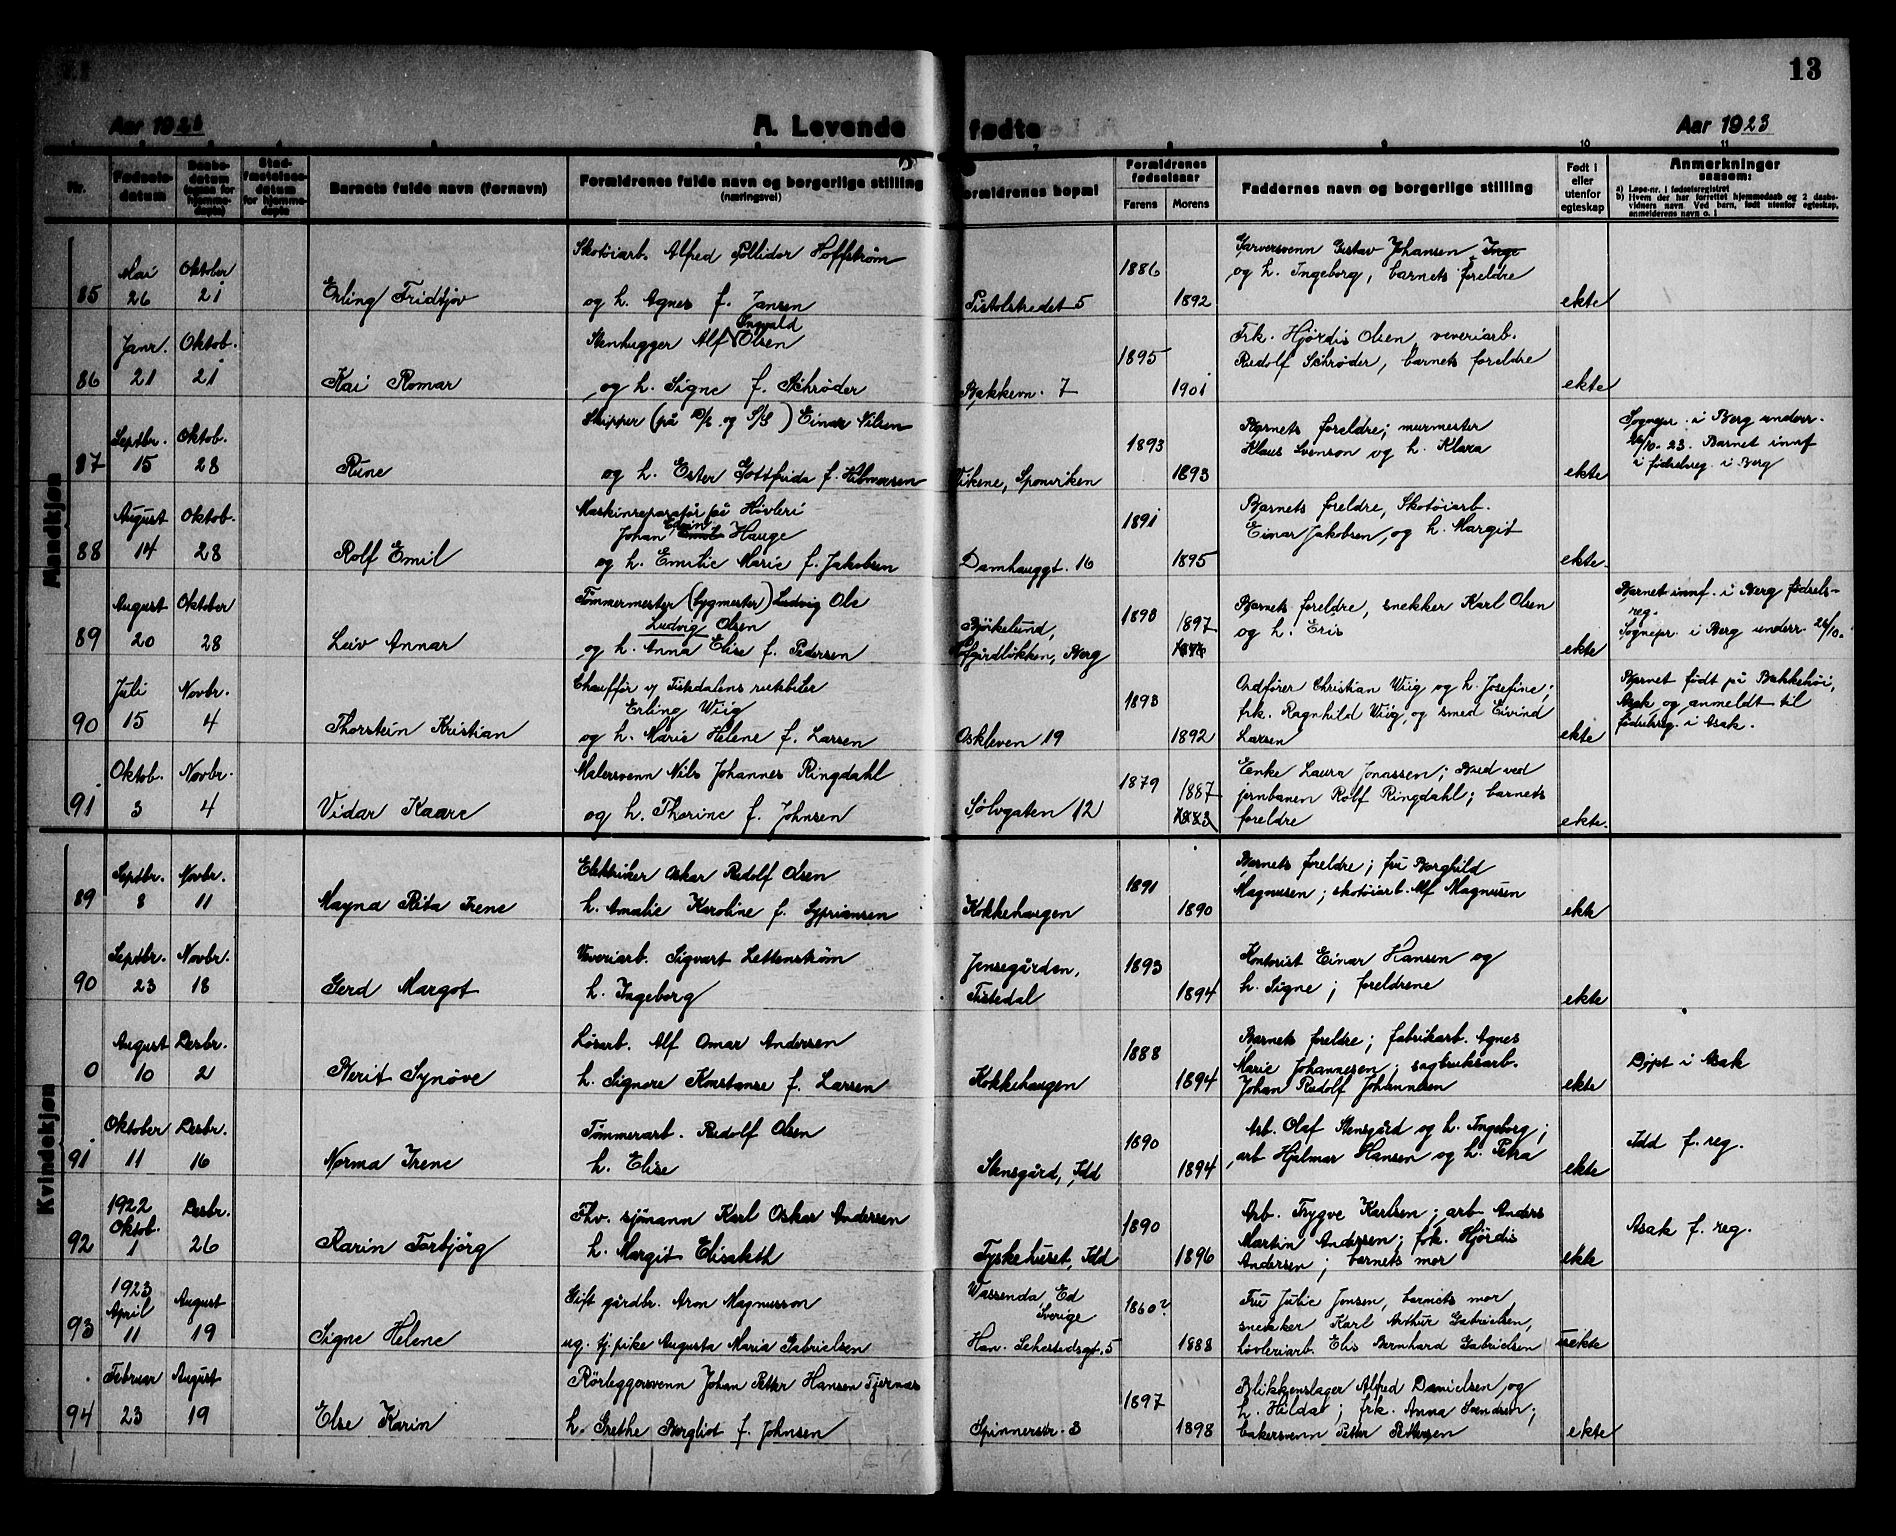 13
Aar 1923
A. Levende fødte
Aar 1923
Nr.
Fødsels-datum
Daabs-datum (ogsaa for hjemme-døpte)
Stad-fæstelses-datum for hjemme-døpte
Barnets fulde navn (fornavn)
Formældrenes fulde navn og borgerlige stilling (næringsvei)
Formældrenes bopæl
Forældrenes fødselsaar
Farens
Morens
Faddernes navn og borgerlige stilling
10
Født i eller utenfor egteskap
11
Anmerkninger saasom:
a) Løpe-nr. i fødselsregistret
b) Hvem der har forrettet hjemmedaab og 2 daabs-vidners navn. Ved barn, født utenfor egteskap, anmelderens navn o. l.
Mandkjøn
85 Mai 26 Oktober 21 Erling Fridtjov
Skotøiarb. Alfred Pollidor Hoffstrøm
og h. Agnes f. Jansen
Pistolstredet 5 1886 1892
Garversvenn Gustav Johansen Inge
og h. Ingeborg, barnets foreldre
ekte
86 Janr. 21 Oktob. 21 Kai Romar
Stenhugger Alf Ingvald Olsen
og h. Signe f. Schrøder
Bakkevn. 7 1895 1901
Frk. Hjørdis Olsen, veveriarb.
Rudolf Schrøder, barnets foreldre
ekte
87 Septbr. 15 Oktob. 28 Rune
Skipper (på D/S og S/S) Einar Nilsen
og h. Ester Gottfrida f. Hilmersen
Vikene, Sponviken 1893 1893
Barnets foreldre; murmester
Klaus Svenson og h. Klara
ekte
Sognepr. i Berg underr.
26/10-23. Barnet innf
i fødselsreg. i Berg
88 August 14 Oktob. 28 Rolf Emil
Maskinreparatør på Høvleri
Johan Edvin Emil Hauge
og h. Emilie Marie f. Jakobsen
Damhauggt. 16 1891 1895
Barnets foreldre, Skotøiarb.
Einar Jakobsen, og h. Margit
ekte
89 August 20 Oktober 28 Leiv Annar
Tømmermester (bygmester) Ludvig Ole
Ludvig Olsen
og h. Anna Elise f. Pedersen
Bjørkelund,
Berg 1898 1897
Barnets foreldre, snekker Karl Olsen
og h. Eris
ekte
Barnet innf. i Berg fødsels-
reg.
Sognepr. i Berg underr. 26/10.
90 Juli 15 Novbr. 4 Thorstein Kristian
Chauffør v/ Tistedalens rutebiler
Erling Wiig
og h. Marie Helene f. Larsen
Oskleven 19 1893 1892
Ordfører Christian Wiig og h. Josefine;
frk. Ragnhild Wiig, og smed Eivind
Larsen
ekte
Barnet født på Bakkehøi,
Asak og anmeldt til
fødselsreg. i Asak.
91 Oktob. 3 Novbr. 4 Vidar Kaare
Malersvenn Nils Johannes Ringdahl
og h. Thorine f. Johnsen
Sølvgaten 12 1879 1887 1883
Enke Laura Jonassen; Bud ved
jernbanen Rolf Ringdahl; barnets
foreldre
ekte.
Kvindekjøn
89 Septbr. 8 Novbr. 11 Mayna Rita Irene
Elektriker Oskar Rudolf Olsen
h. Amalie Karoline f. Sypriansen
Kokkehaugen 1891 1890
Barnets foreldre; fru Borghild
Magnusen; skotøiarb. Alf Magnusen
ekte
90 Septbr. 23 Novbr. 18 Gerd Margot
Veveriarb. Sigvart Lettenstrøm
h. Ingeborg
Jensegården,
Tistedal 1893 1894
Kontorist Einar Hansen og
h. Signe; foreldrene
ekte
0 August 10 Desbr. 2 Berit Synøve
Løsarb. Alf Omar Andersen
h. Signore Konstanse f. Larsen
Kokkehaugen 1888 1894
Barnets foreldre; fabrikarb. Agnes
Marie Johannesen; sagbruksarb.
Johan Rudolf Johannesen
ekte
Døpt i Asak
91 Oktober 11 Desbr. 16 Norma Irene
Tømmerarb. Rudolf Olsen
h. Elise
Stensgård, Idd 1890 1894
Arb. Olaf Stensgård og h. Ingeborg;
arb Hjalmar Hansen og h. Petra
ekte
Idd f. reg.
92 1922 Oktob. 1 Desbr. 26 Karin Torbjörg
Fhv. sjömann Karl Oskar Andersen
h. Margit Elisabeth
Tyskehuset, Idd 1890 1896
Arb. Trygve Karlsen; arb Anders
Martin Andersen; frk. Hjördis
Andersen; barnets mor
ekte
Asak f. reg.
93 1923 April 11 August 19 Signe Helene
Gift gårdbr. Aron Magnusson
ug. tj. pike Augusta Maria Gabrielsen
Wassenda Ed
Sverige
Han. Sehestedsgt. 5 1860? 1888
Fru Julie Jensen, barnets mor
snekker Karl Arthur Gabrielsen,
høvleriarb. Elis Bernhard Gabrielsen
uekte
94 Februar 23 August 19 Else Karin
Rörleggersvenn Johan Petter Hansen Tjernæs
h. Grethe Bergliot f. Johnsen
Spinnerstr. 3 1897 1898
Blikkenslager Alfred Danielsen, og
h. Hilda; frk. Anna Svendsen;
bakersvenn Petter Pettersen
ekte